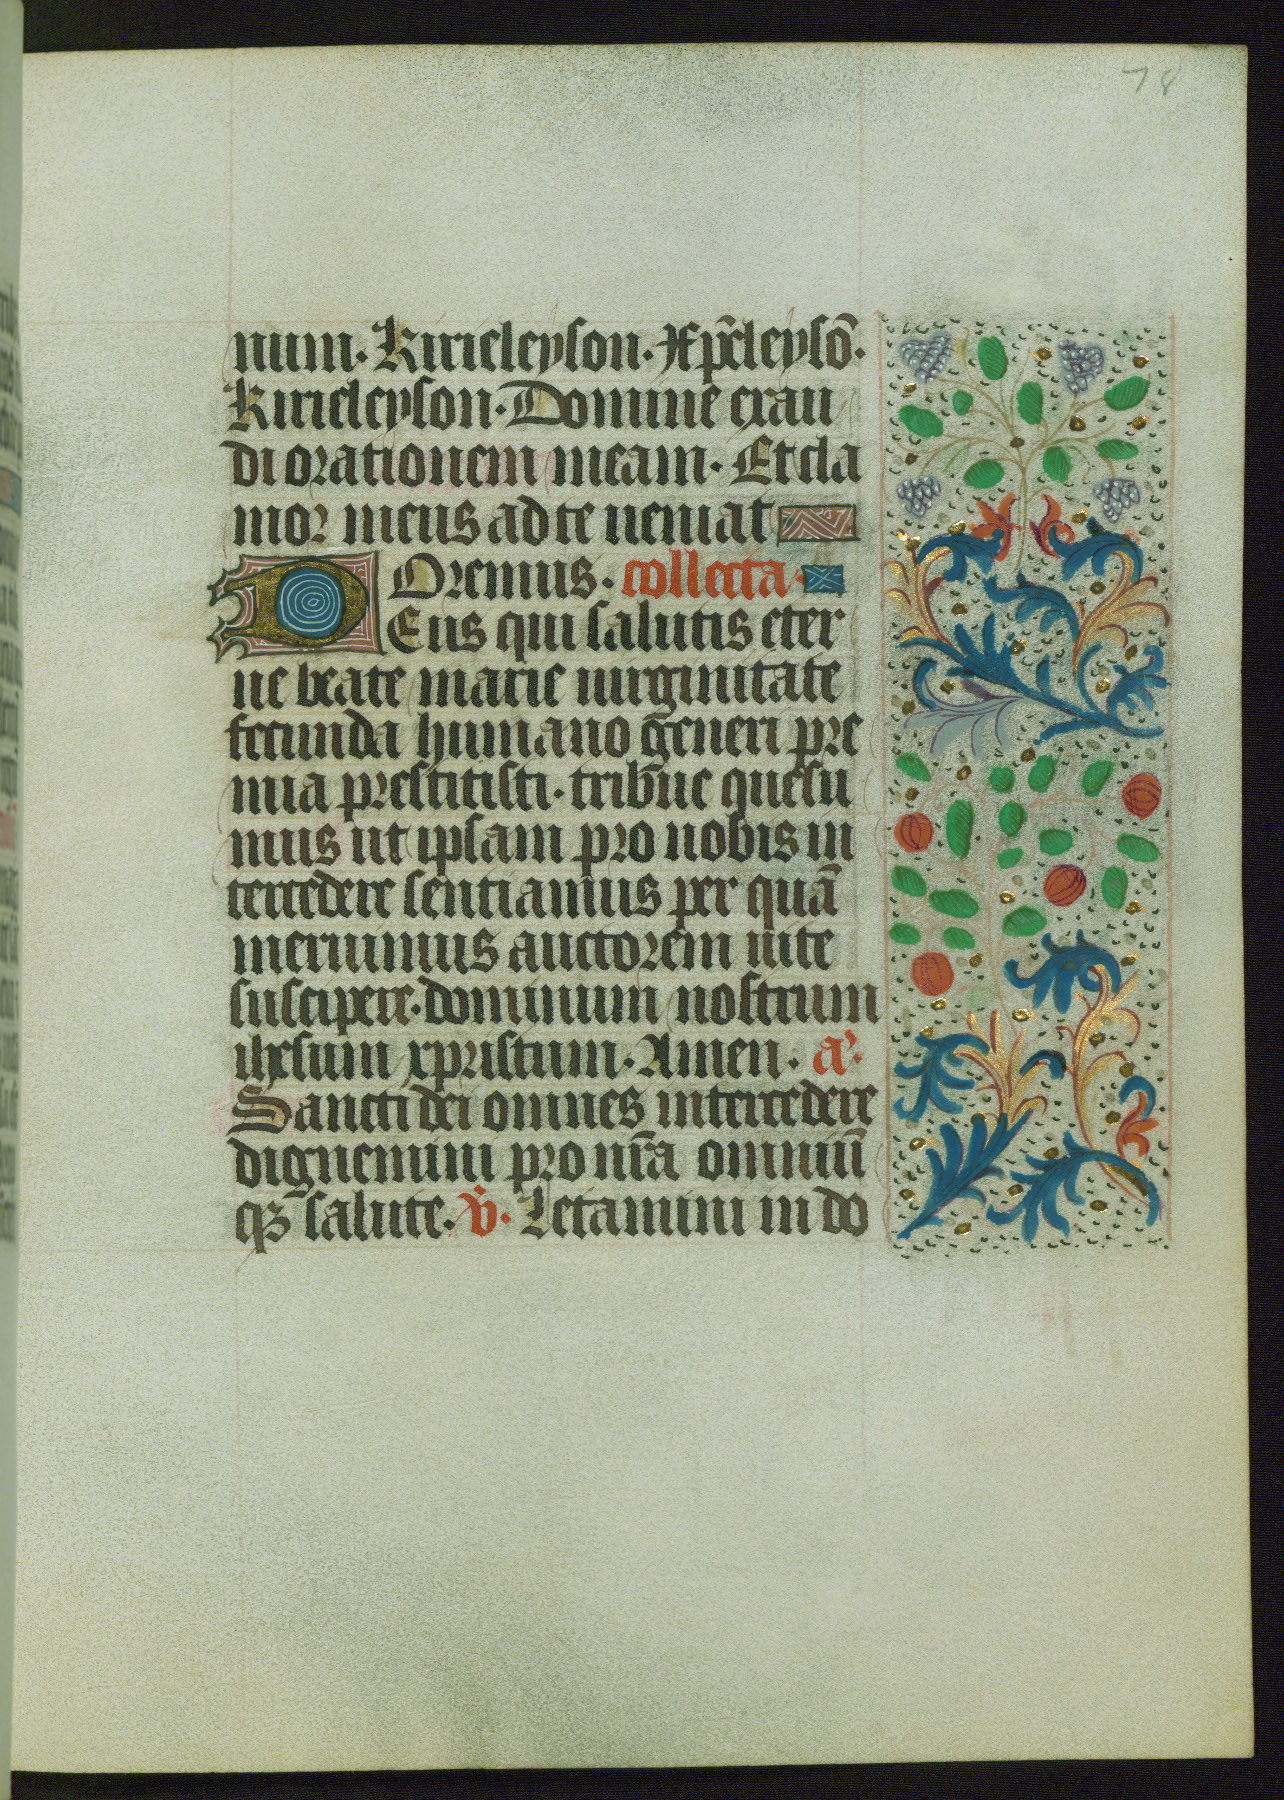 78
num. Kirieleyson. Xp̄eleysō.
Kirieleyson. Domine exau
di orationem meam. Et cla
mor meus ad te ueniat
Oremus. collecta.
DEus qui salutis eter
ne beate marie uirginitate
fecunda humano generi pre
mia prestitisti. tribue quesu
mus ut ipsam pro nobis in
tercedere sentiamus per quā
meruimus auctorem uite
suscipere. dominum nostrum
ihesum xpristum. Amen. a'.
Sancti dei omnes intercedere
dignemini pro nr̄a omniū
qꝫ salute. v̄. Letamini in do